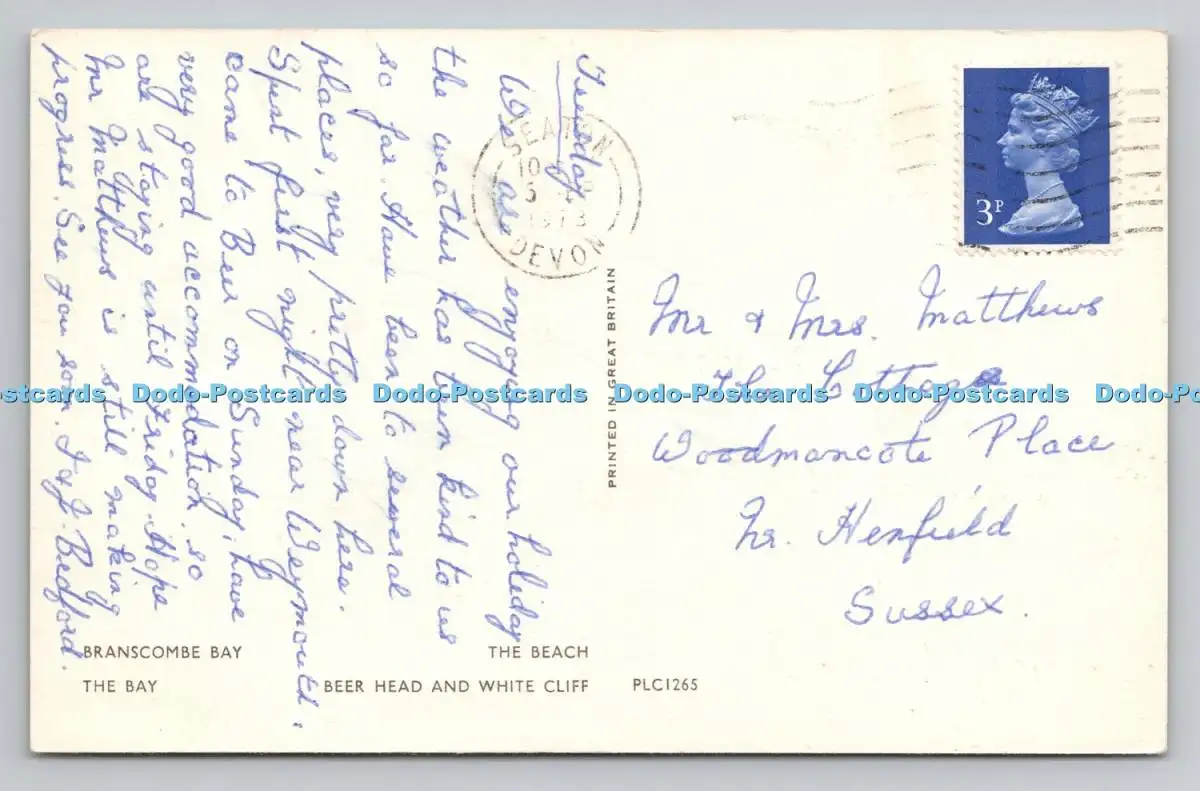 Tuesday.
We are enjoying our holiday
the weather has been kind to us
so far. Have been to several
places, very pretty down here.
Spent first night near Weymouth.
came to Beer on Sunday, have
very good accommodation. so
are staying until Friday. Hope
Mr Matthews is still making
progress. See you soon. J. Bedford.
SEATON
10
5
1973
DEVON
3P
PRINTED IN GREAT BRITAIN
Mr & Mrs. Matthews
The Cottage
Woodmancote Place
Nr. Henfield
Sussex.
BRANSCOMBE BAY THE BEACH
THE BAY BEER HEAD AND WHITE CLIFF PLC1265
Postcards Dodo-Postcards Dodo-Postcards Dodo-Postcards Dodo-Postcards Dodo-Po